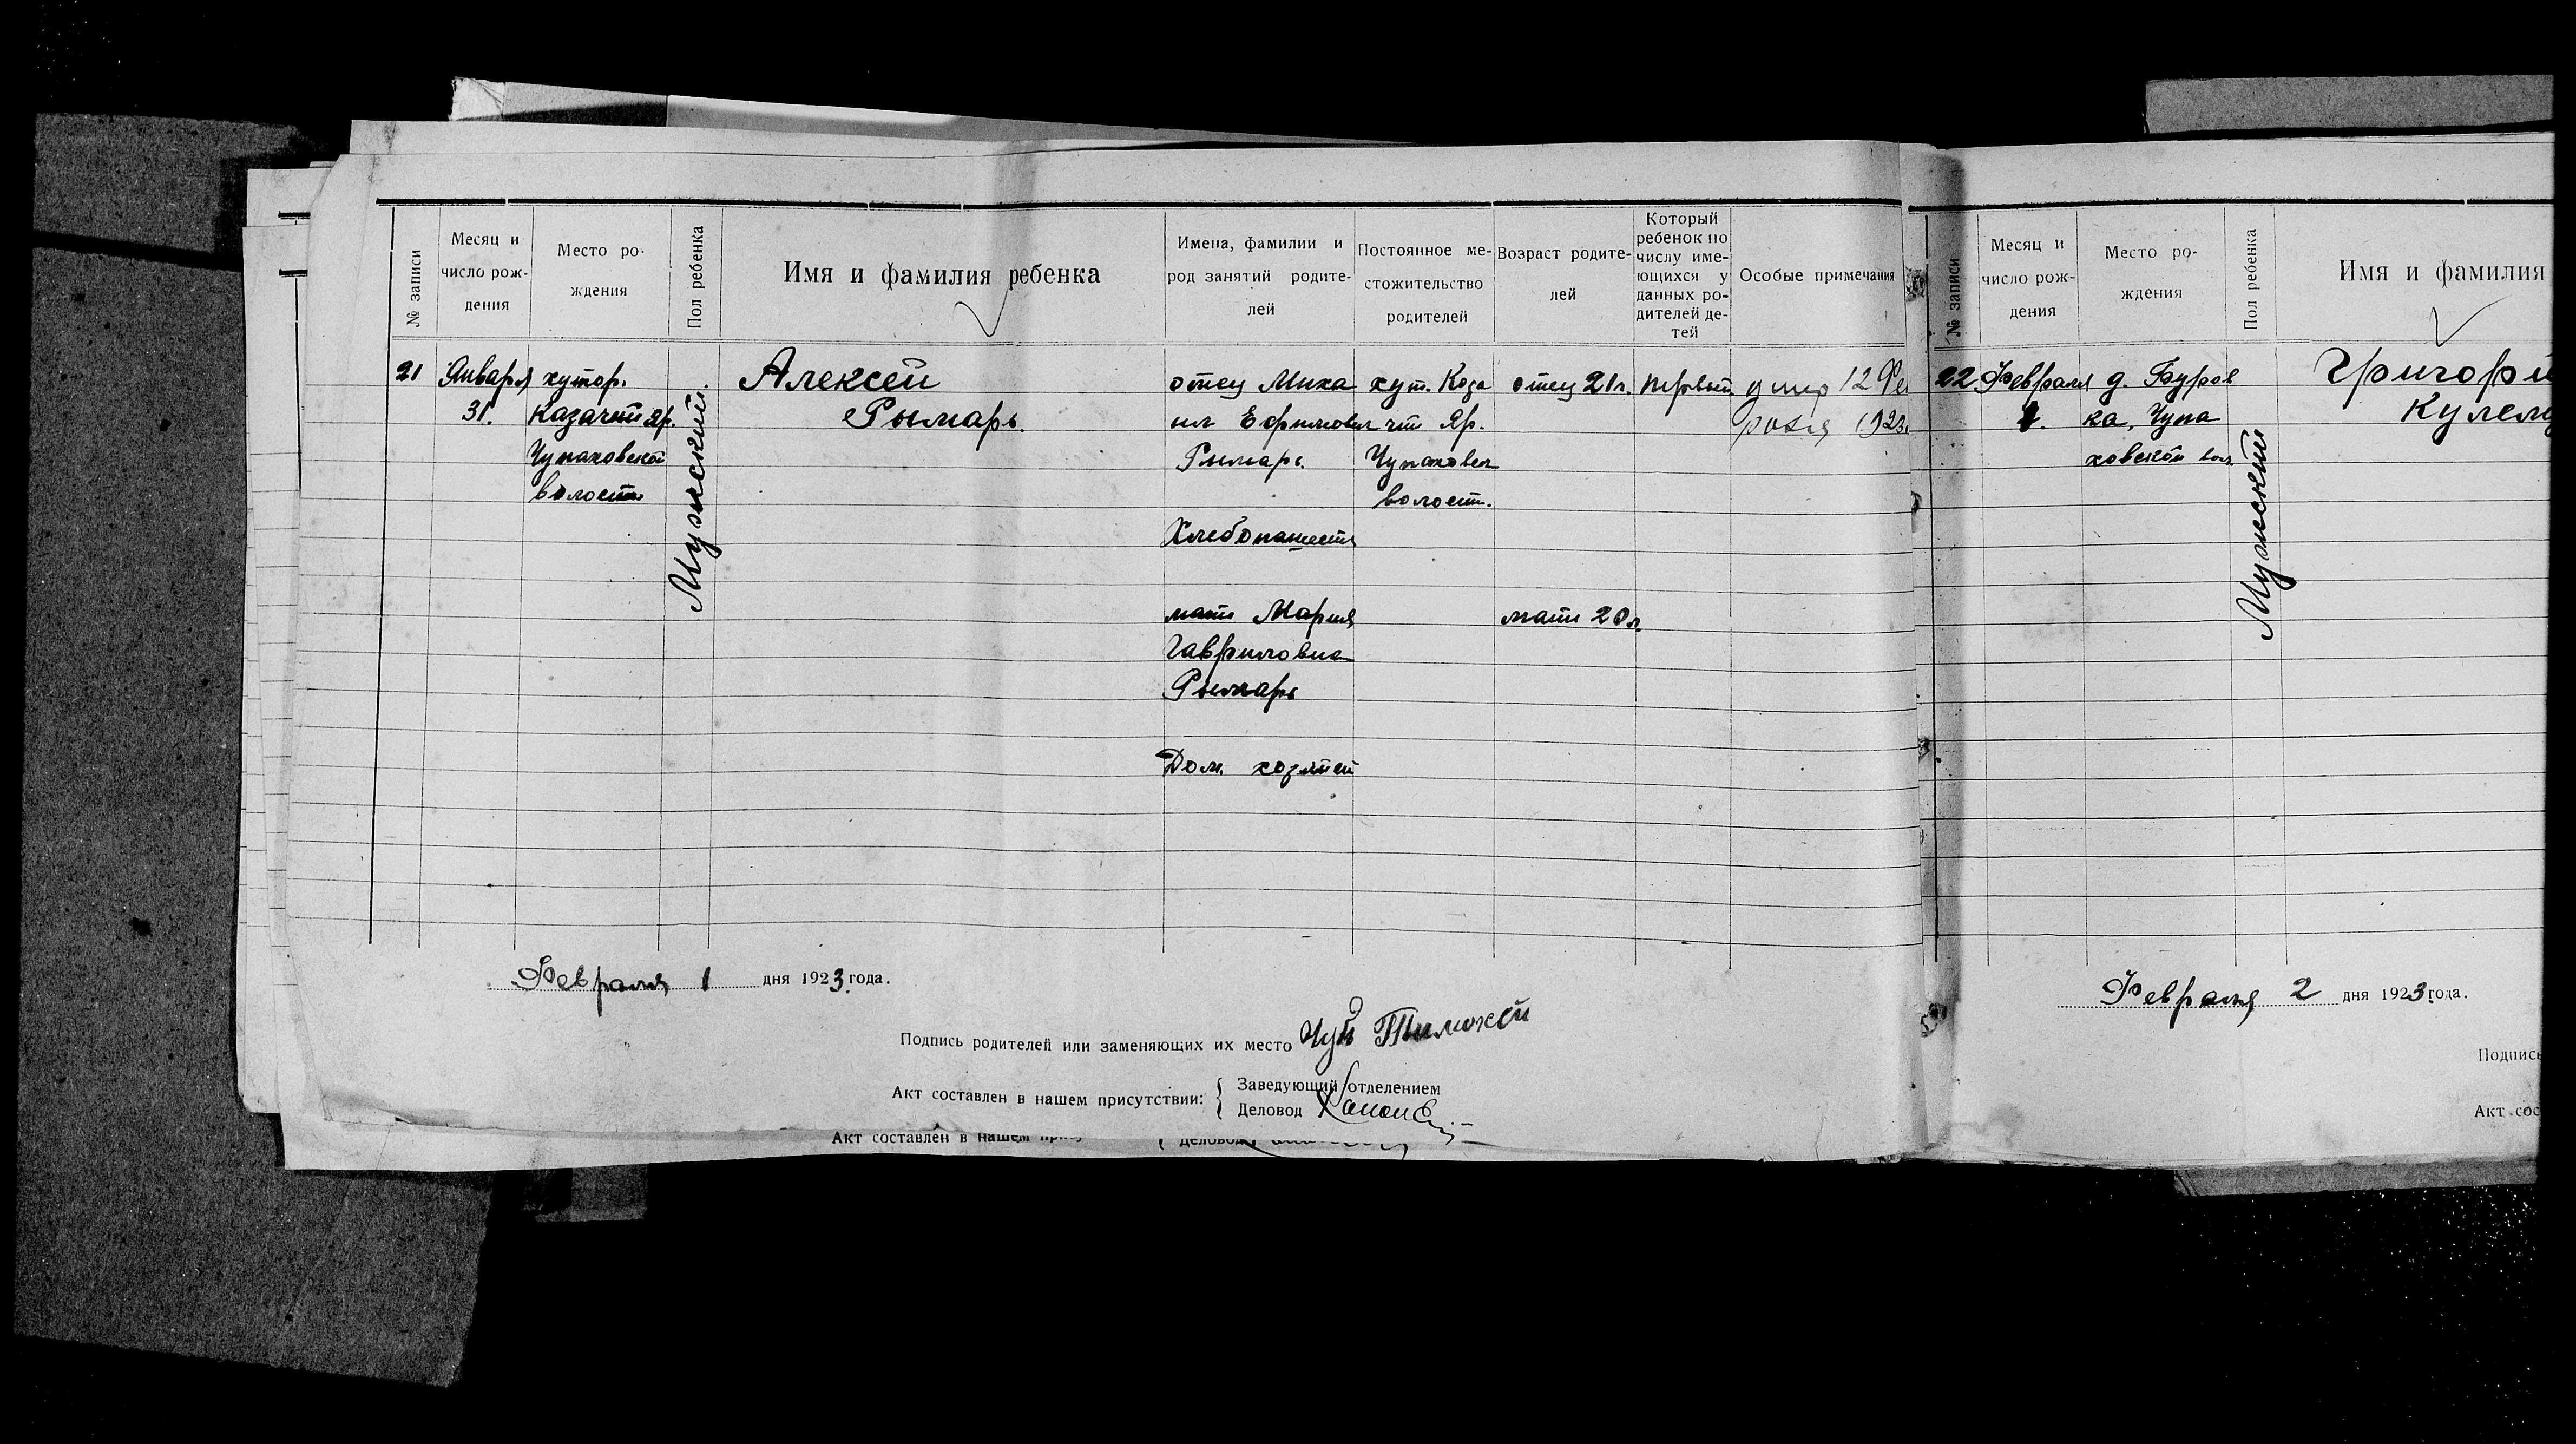 № записи
Месяц и
число рож-
дения
Место ро-
ждения
Пол ребенка
Имя и фамилия ребенка
Имена, фамилии и
род занятий родите-
лей
Постоянное ме-
стожительство
родителей
Возраст родите-
лей
Который
ребенок по
числу име-
ющихся у
данных ро-
дителей де-
тей
Особые примечания
21
Января
31.
хутор.
Казачий Яр.
Чупаховской
волости
Мужский.
Алексей
Рымарь.
отец Миха
ил Ефимович
Рымарь.
Хлебопашеств
мать Мария
Гавриловна
Рымарь
Дом. хозяйст
хут. Каза
чий Яр.
Чупаховск
волост.
отец 21 г.
мать 20 л.
первый.
умер 12 Фев
раля 1923
Февраля 1 дня 1923 года.
Подпись родителей или заменяющих их место Чуй
Акт составлен в нашем присутствии:
Заведующий отделением
Деловод
Акт составлен в нашем
Деловод
№ записи
Месяц и
число рож-
дения
Место ро-
ждения
Пол ребенка
Имя и фамилия
22.
Февраля
1.
д. Буров
ка, Чупа
ховской вол.
Мужский
Григори
Февраля 2 дня 1923 года.
Подпись
Акт сос